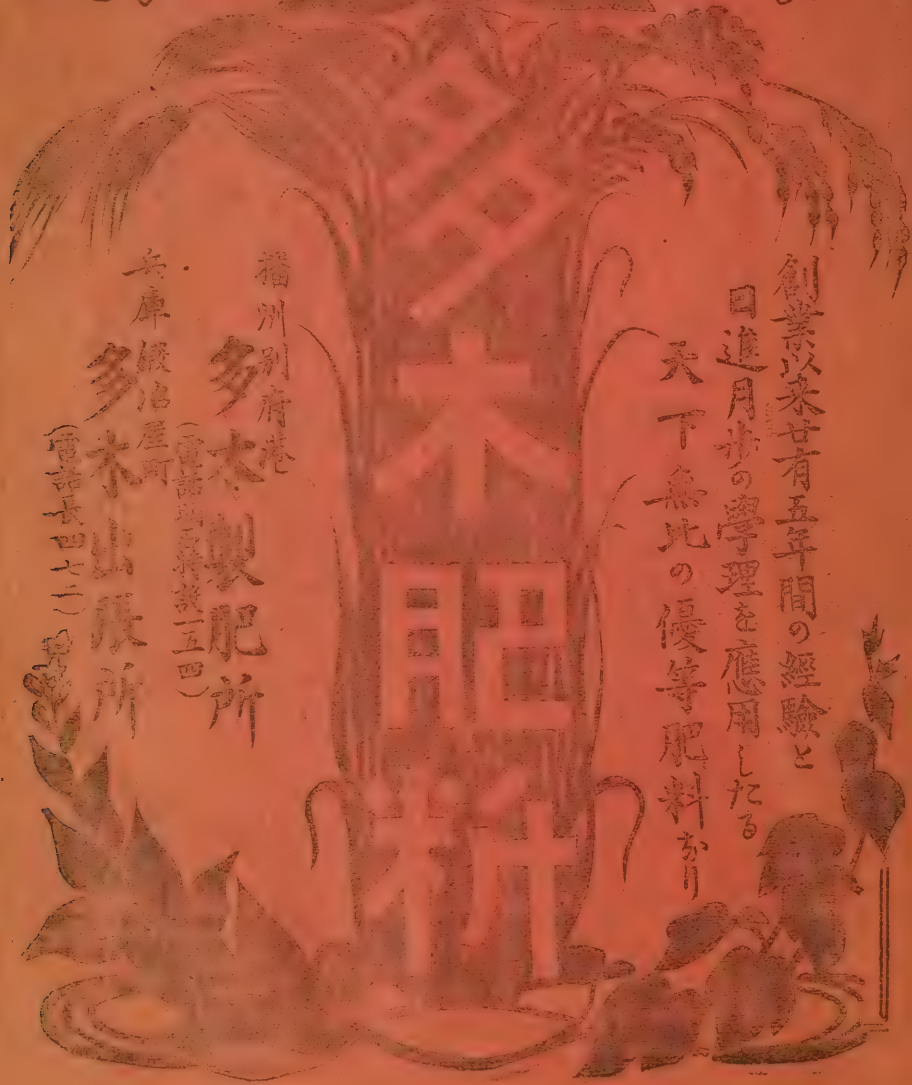 創業以来廿有五年間の經驗と
日進月歩の學理を應用したる
天下無比の優等肥料なり
多木肥料
播州別府港
多木製肥所
兵庫鍛冶屋町
多木出張所
(電話長四七二)